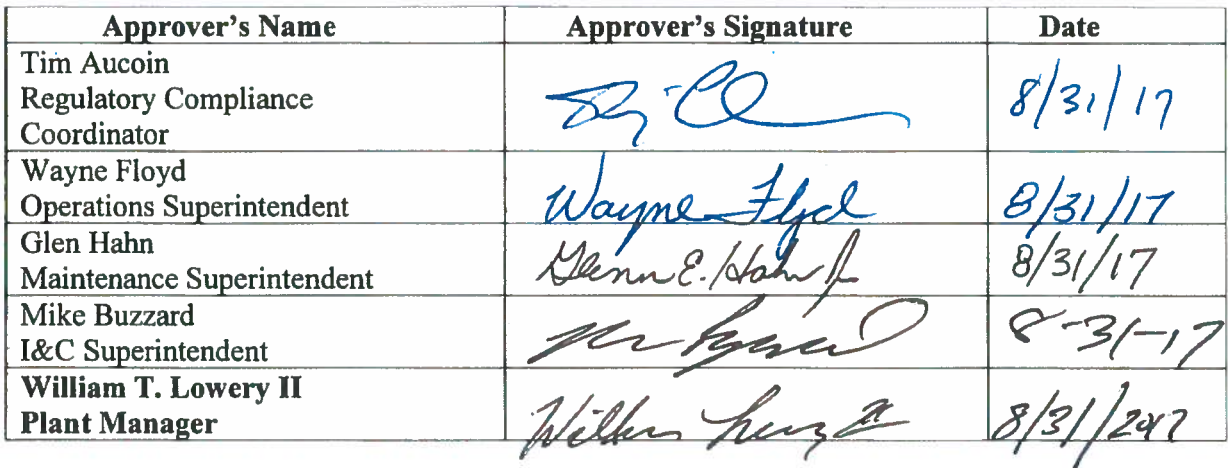 Approver's Name Approver's Signature Date
Tim Aucoin
Regulatory Compliance
Coordinator
8/31/17
Wayne Floyd
Operations Superintendent
Wayne Floyd 8/31/17
Glen Hahn
Maintenance Superintendent
Glenn E. Hahn Jr 8/31/17
Mike Buzzard
I&C Superintendent
8-31-17
William T. Lowery II
Plant Manager
8/31/2017